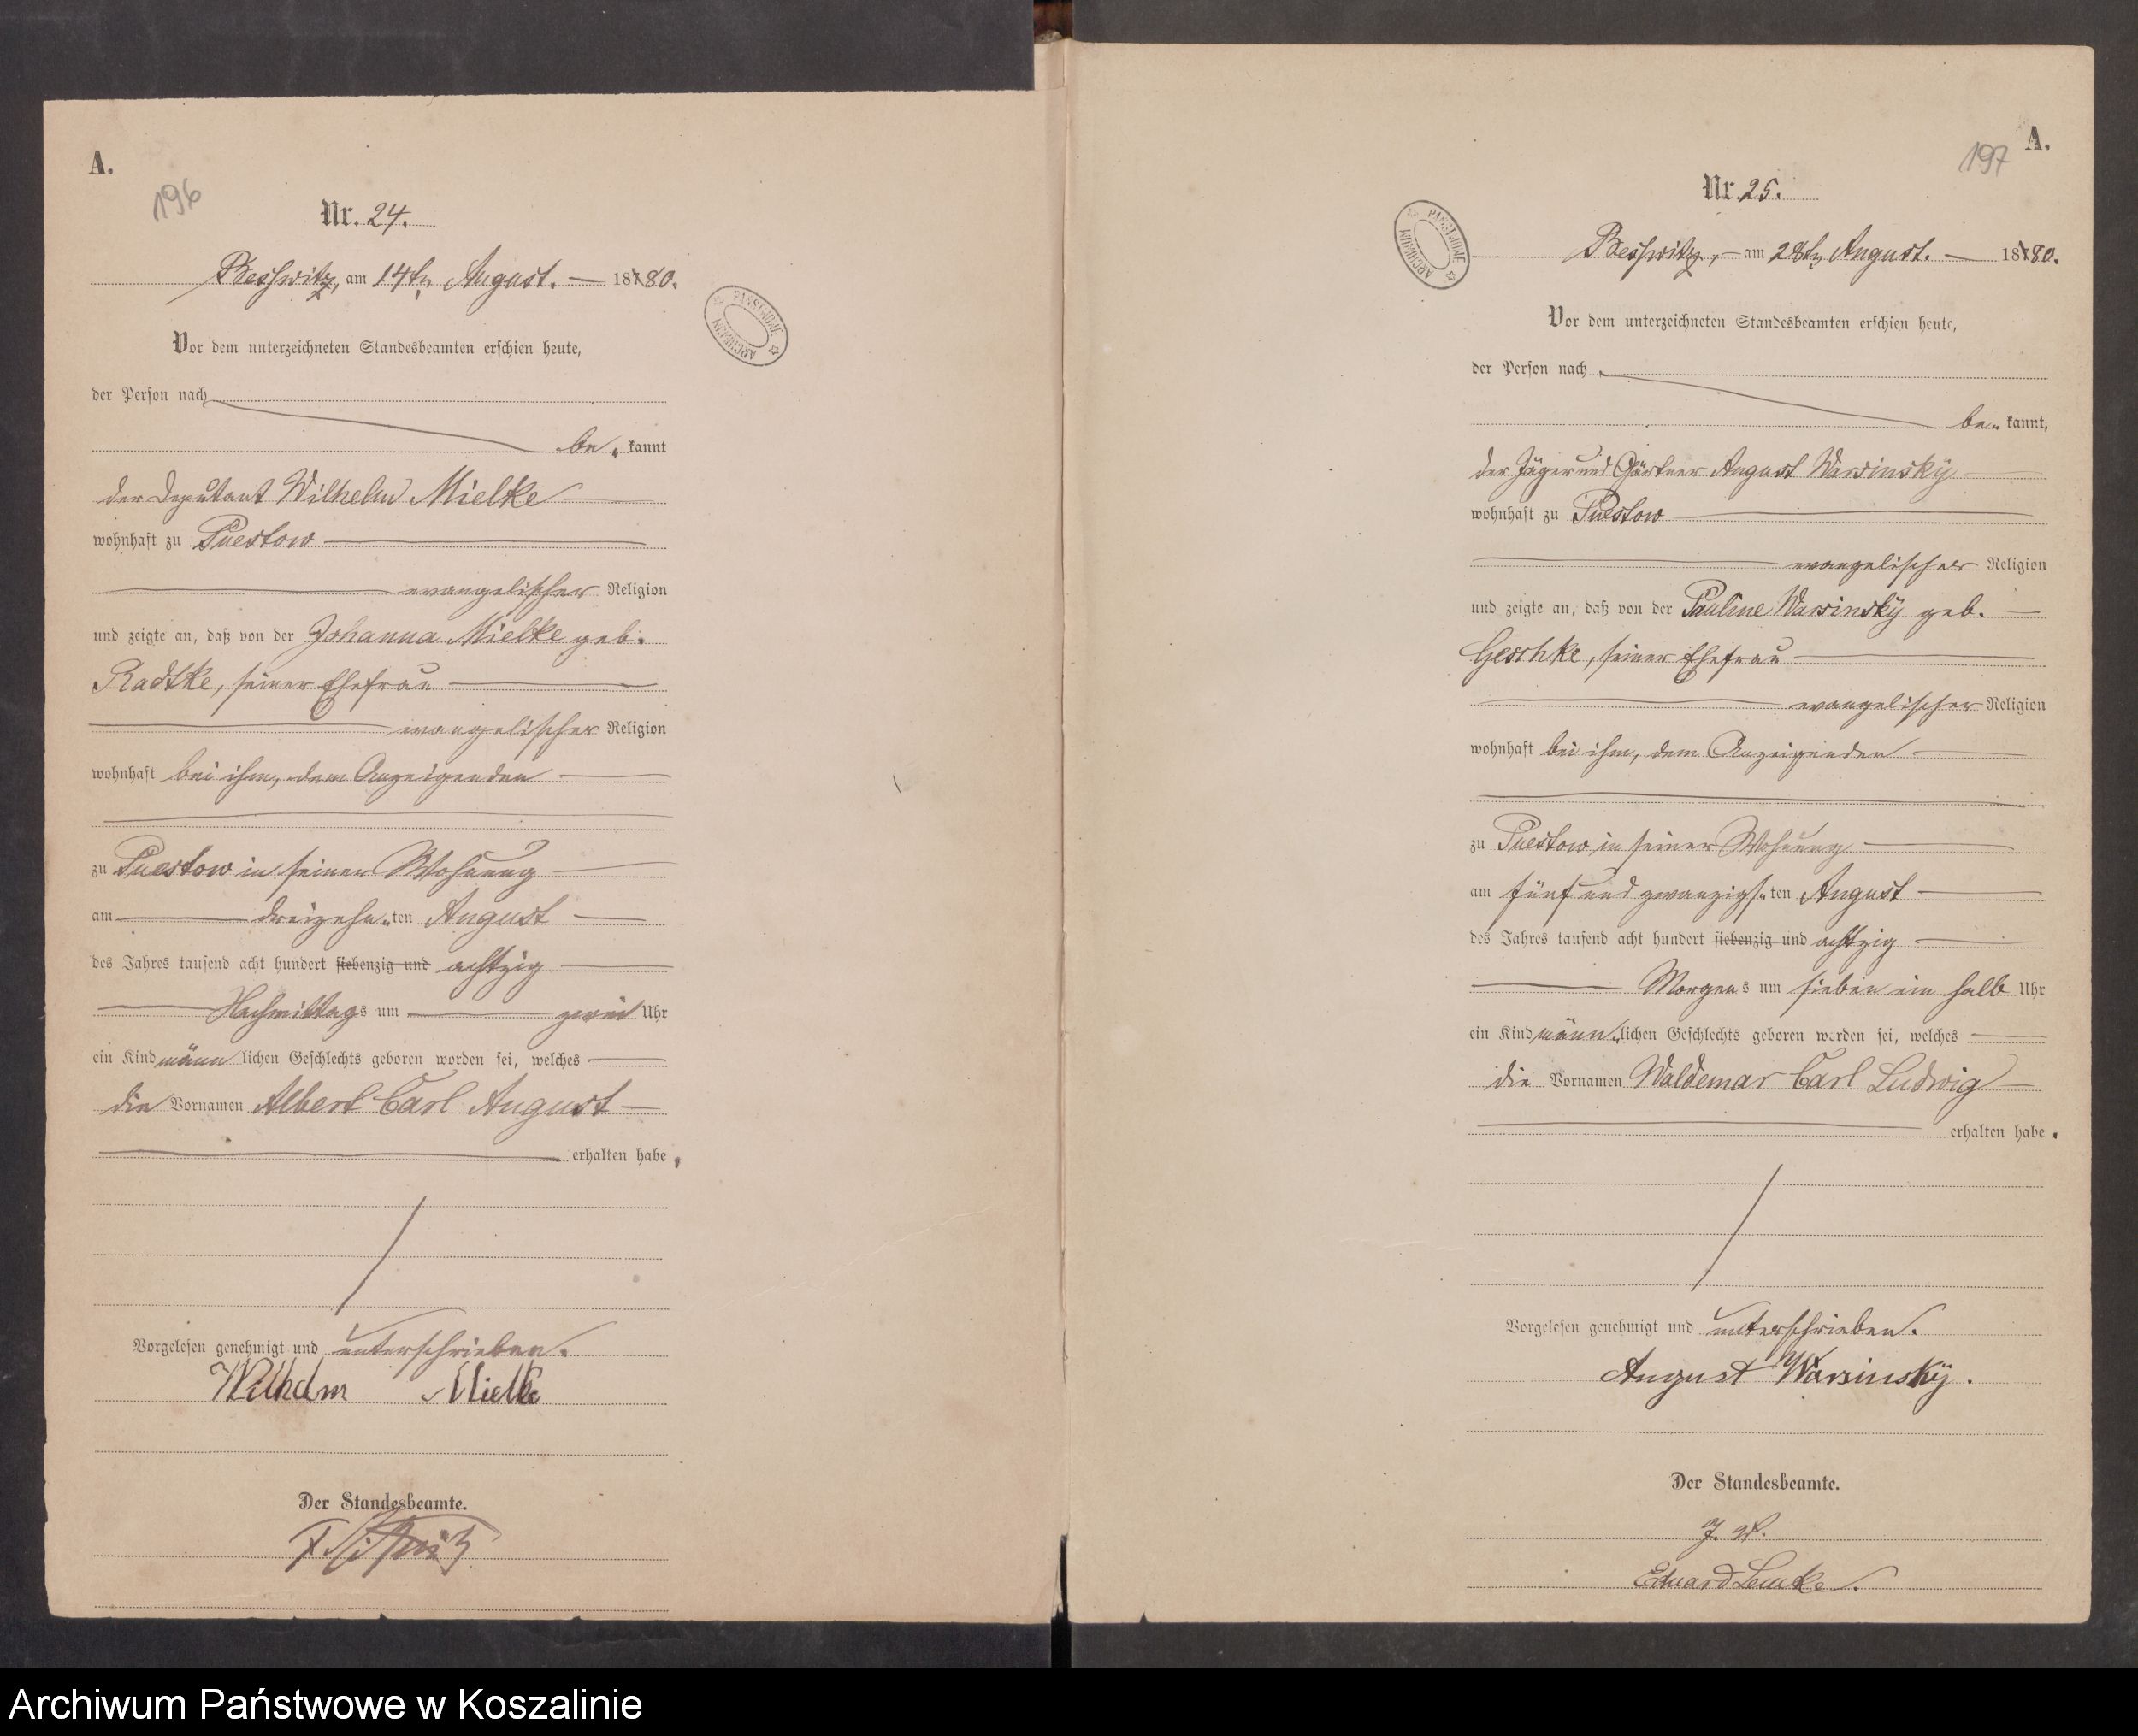 A.
196
Nr. 24.
Beßwitz, am 14tn August. 18780.
Vor dem unterzeichneten Standesbeamten erschien heute,
der Person nach
be„ kannt
der Deputant Wilhelm Mielke
wohnhaft zu Puestow
evangelischer Religion
und zeigte an, daß von der Johanna Mielke geb.
Radtke, seiner Ehefrau
evangelischer Religion
wohnhaft bei ihm, dem Anzeigenden
zu Puestow in seiner Wohnung
am dreizehn„ten August
des Jahres tausend acht hundert siebenzig und achtzig
Nachmittags um zwei Uhr
ein Kind männ lichen Geschlechts geboren worden sei, welches
die Vornamen Albert Carl August
erhalten habe.
Vorgelesen genehmigt und unterschrieben.
Wilhelm Mielke
Der Standesbeamte.
A.
197
Nr. 25.
ARCHIWUM PAŃSTWOWE
Beßwitz, am 28tn August. 18780.
Vor dem unterzeichneten Standesbeamten erschien heute,
der Person nach
be„ kannt,
der Jäger und Gärtner August Warsinsky
wohnhaft zu Puestow
evangelischer Religion
und zeigte an, daß von der Pauline Warsinsky geb.
Geschke, seiner Ehefrau
evangelischer Religion
wohnhaft bei ihm, dem Anzeigenden
zu Puestow in seiner Wohnung
am fünf und zwanzigs„ten August
des Jahres tausend acht hundert siebenzig und achtzig
Morgens um sieben ein halb Uhr
ein Kind männ„lichen Geschlechts geboren worden sei, welches
die Vornamen Waldemar Carl Ludwig
erhalten habe.
Vorgelesen genehmigt und unterschrieben.
August Warsinsky.
Der Standesbeamte.
J. V.
Eduard Lemke.
ARCHIWUM PAŃSTWOWE
Archiwum Państwowe w Koszalinie